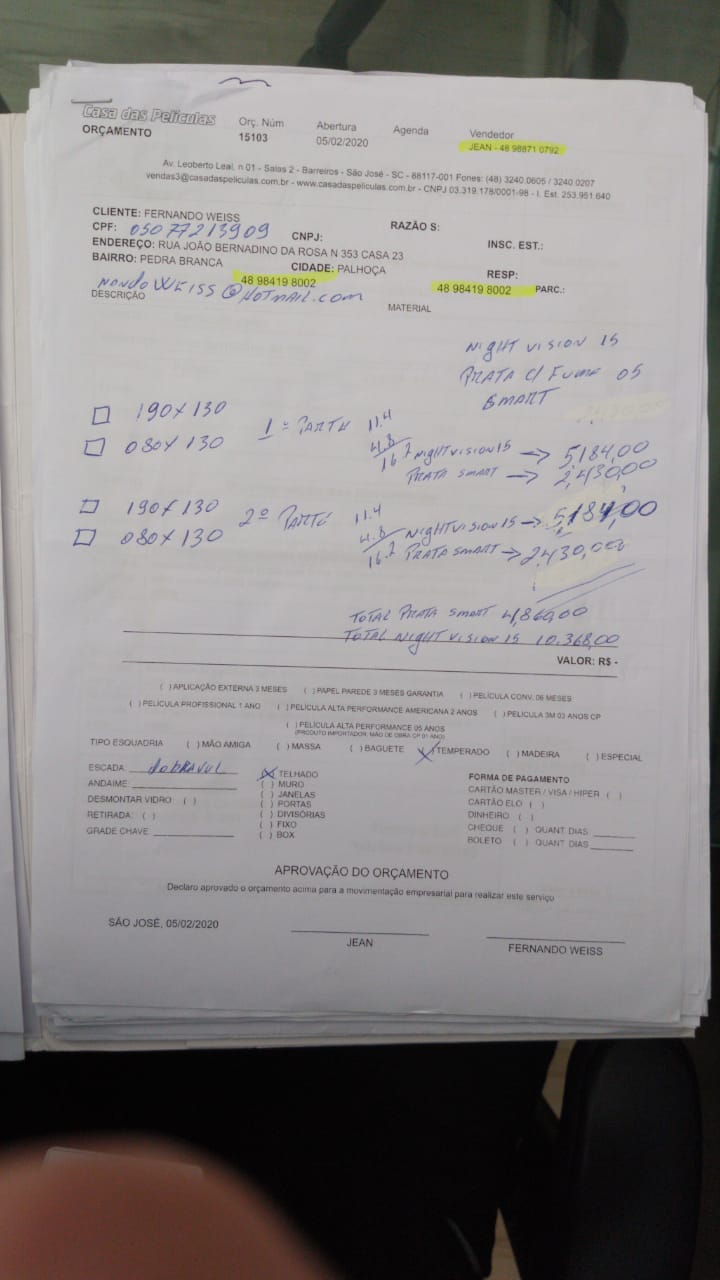 Casa das Películas
ORÇAMENTO
Orç. Núm
15103
Abertura
05/02/2020
Agenda
Vendedor
JEAN - 48 98871 0792
Av. Leoberto Leal, n 01 - Salas 2 - Barreiros - São José - SC - 88117-001 Fones: (48) 3240.0605 / 3240.0207
vendas3@casadaspeliculas.com.br - www.casadaspeliculas.com.br - CNPJ 03.319.178/0001-98 - I. Est. 253.951.640
CLIENTE: FERNANDO WEISS RAZÃO S:
CPF: 05077213909 CNPJ: INSC. EST.:
ENDEREÇO: RUA JOÃO BERNADINO DA ROSA N 353 CASA 23
BAIRRO: PEDRA BRANCA CIDADE: PALHOÇA RESP:
48 98419 8002 48 98419 8002 PARC.:
NANDOWEISS@HOTMAIL.COM
DESCRIÇÃO MATERIAL
NIGHT VISION 15
PRATA C/ FUME 05
SMART
190X130 1º PARTE 11.4
080X130 4.8 NIGHT VISION 15 → 5184,00
16.2 PRATA SMART → 2,430,00
190X130 2º PARTE 11.4
080X130 4.8 NIGHT VISION 15 → 5,184,00
16.2 PRATA SMART → 2.430,00
TOTAL PRATA SMART 4,860,00
TOTAL NIGHT VISION 15 10.368,00
VALOR: R$ -
( ) APLICAÇÃO EXTERNA 3 MESES ( ) PAPEL PAREDE 3 MESES GARANTIA ( ) PELÍCULA CONV. 06 MESES
( ) PELÍCULA PROFISSIONAL 1 ANO ( ) PELÍCULA ALTA PERFORMANCE AMERICANA 2 ANOS ( ) PELÍCULA 3M 03 ANOS CP
( ) PELÍCULA ALTA PERFORMANCE 05 ANOS
(PRODUTO IMPORTADOR, MÃO DE OBRA CP 01 ANO)
TIPO ESQUADRIA ( ) MÃO AMIGA ( ) MASSA ( ) BAGUETE (X) TEMPERADO ( ) MADEIRA ( ) ESPECIAL
ESCADA: DOBRAVUL
ANDAIME:
DESMONTAR VIDRO ( )
RETIRADA: ( )
GRADE CHAVE:
(X) TELHADO
( ) MURO
( ) JANELAS
( ) PORTAS
( ) DIVISÓRIAS
( ) FIXO
( ) BOX
FORMA DE PAGAMENTO
CARTÃO MASTER / VISA / HIPER ( )
CARTÃO ELO ( )
DINHEIRO ( )
CHEQUE ( ) QUANT DIAS
BOLETO ( ) QUANT DIAS
APROVAÇÃO DO ORÇAMENTO
Declaro aprovado o orçamento acima para a movimentação empresarial para realizar este serviço
SÃO JOSÉ, 05/02/2020
JEAN
FERNANDO WEISS